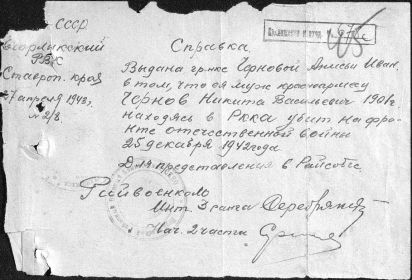 СССР
Егорлыкский
РВК
Ставроп. края
27 апреля 1943г.
№ 2/8
Справка
Выдана гр-нке Черновой Анисьи Иван.
в том, что ея муж красноармеец
Чернов Никита Васильевич 1901г.
находясь в РККА убит на фро-
нте отечественной войны
25 декабря 1942 года
Для представления в Райсобес.
Райвоенком
Инт. 3 ранга Серебряков
Нач. 2 части